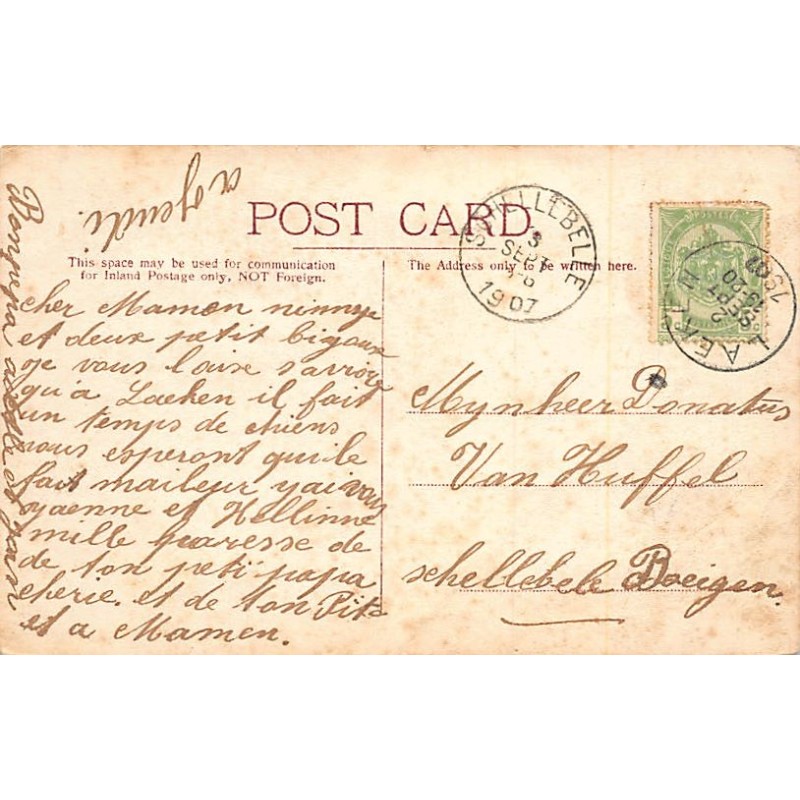 POST CARD.
This space may be used for communication
for Inland Postage only, NOT Foreign.
The Address only to be written here.
SCHELLEBELLE
3
SEPT
1907
LAEKEN
2
SEPT
1907
a jeudi.
cher Mamen ninnye
et deux petit bigaux
je vous laise savroir
qu'a Lacken il fait
un temps de chiens
nous esperont qui le
fait maileur y
et Hellinne
mille quaresse de
de ton peti papa
cherie. et de ton Pite
et a Mamen.
Bonpapa
Mynheer Donatus
Van Huffel
schellebele Dreigen.